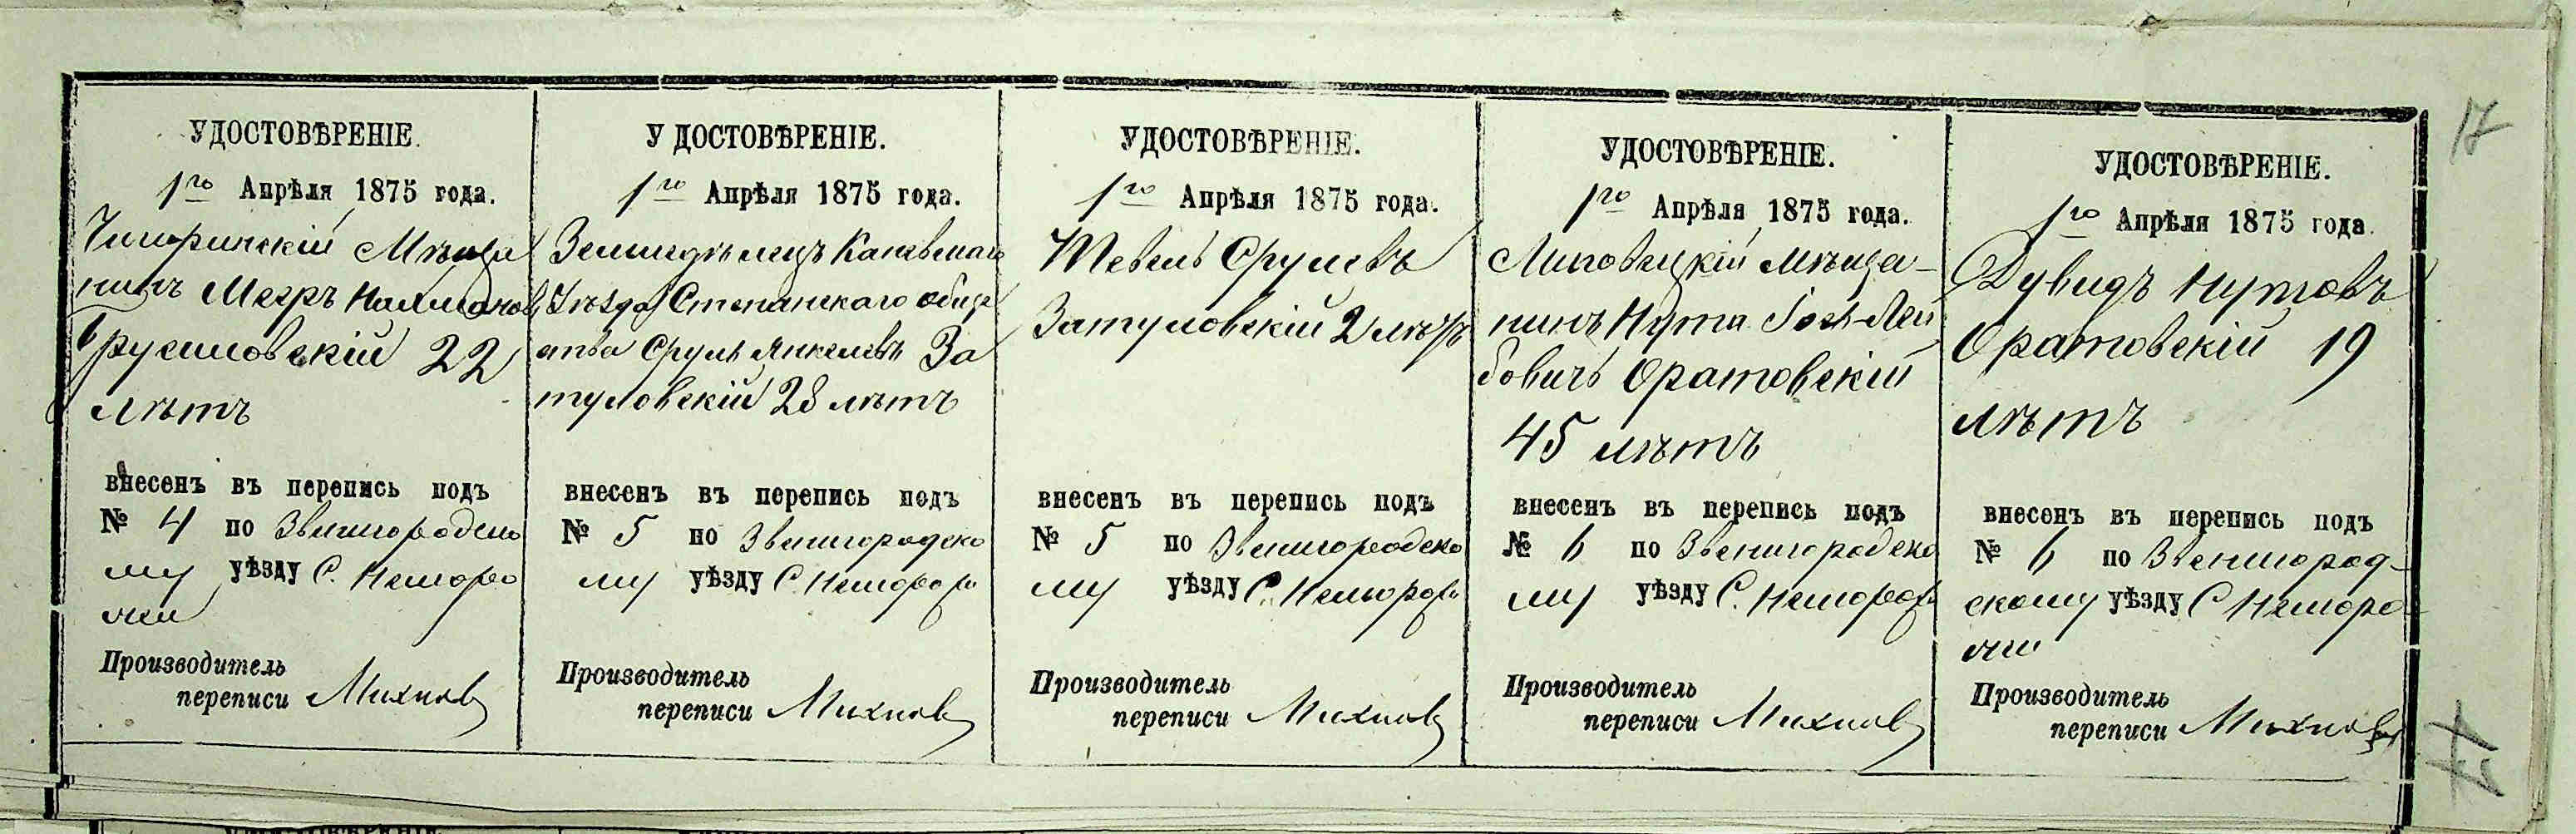 УДОСТОВѢРЕНІЕ.
1го Апрѣля 1875 года.
Чигиринскій Мѣща
нинъ Мееръ Нахманов
Трусиловскій 22
лѣтъ
внесенъ въ перепись подъ
№ 4 по Звенигородско
му уѣзду С. Неморо
жи
Производитель
переписи Михнов
УДОСТОВѢРЕНІЕ.
1го Апрѣля 1875 года.
Земледѣлецъ Каневскаго
Уѣзда Степанскаго обще
ства Сруль Янкелевъ За
туловскій 28 лѣтъ
внесенъ въ перепись подъ
№ 5 по Звенигородско
му уѣзду С. Неморож
Производитель
переписи Михнов
УДОСТОВѢРЕНІЕ.
1го Апрѣля 1875 года.
Тевель Срулевъ
Затуловскій 2 лѣтъ
внесенъ въ перепись подъ
№ 5 по Звенигородско
му уѣзду С. Неморож
Производитель
переписи Михнов
УДОСТОВѢРЕНІЕ.
1го Апрѣля 1875 года.
Липовецкій мѣща-
нинъ Нута Іось-Лей
бовичъ Оратовскій
45 лѣтъ
внесенъ въ перепись подъ
№ 6 по Звенигородско
му уѣзду С. Неморож
Производитель
переписи Михнов
УДОСТОВѢРЕНІЕ.
1го Апрѣля 1875 года.
Дувидъ Нутовъ
Оратовскій 19
лѣтъ
внесенъ въ перепись подъ
№ 6 по Звенигород-
скому уѣзду С Неморо
жи
Производитель
переписи Михнов
17